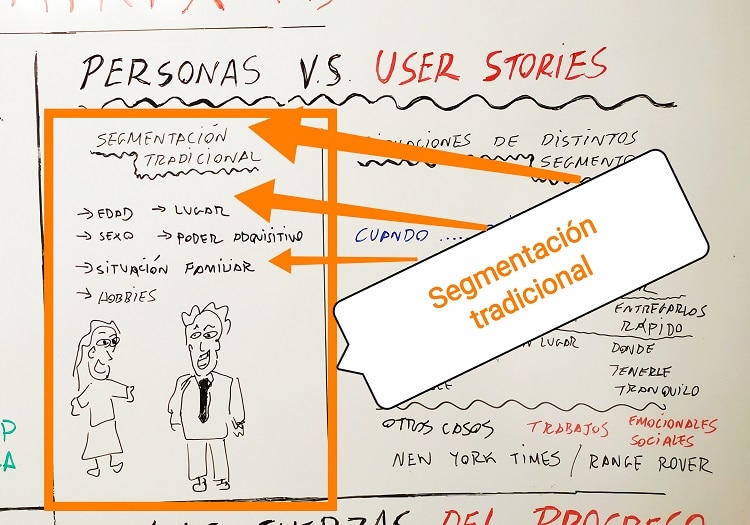 PERSONAS V.S. USER STORIES
SEGMENTACIÓN
TRADICIONAL
→ EDAD → LUGAR
→ SEXO → PODER ADQUISITIVO
→ SITUACIÓN FAMILIAR
→ HOBBIES
DE DISTINTOS
SEGMENTO
CUANDO ....
Segmentación
tradicional
ENTREGARLOS
RÁPIDO
LUGAR DONDE
TENERLE
TRANQUILO
OTROS CASOS TRABAJOS EMOCIONALES
SOCIALES
NEW YORK TIMES / RANGE ROVER
FUERZAS DEL PROGRESO